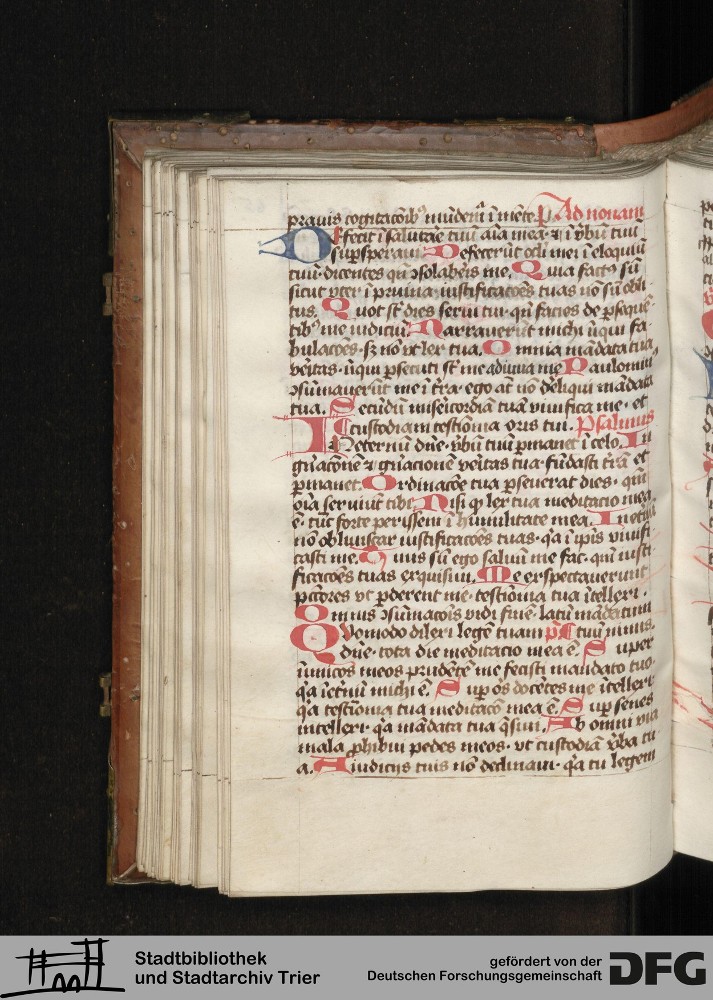 prauis cogitacoib⁹ mūderī ī mēte. P̄ Ad nonam
Defecit ī salutare tuū aīa mea ⁊ ī ūbū tuū
sup̄speraui Defecerūt ocli mei ī eloquiū
tuū· dicentes qn̄ ↄsolabeis me. Quia fact⁹ sū
sicut vter ī pruina iustificatoēs tuas nō sū obli
tus. Quot st̄ dies serui tui· qn̄ facies de ꝑsequē
tib⁹ me iudiciū. Narrauerūt michi īiqui fa
bulacoēs· sꝫ nō vt lex tua. Omnia mādata tua
vēitas· īiqui ꝑsecuti st̄ me adiuua me Paulomin⁹
ↄsūmauerūt me ī tr̄a· ego aūt nō deliqui mādata
tua. Secūdū misēicordiā tuā viuifica me· et
custodiam testīonia oris tui. Psalmus
In eternū dn̄e· ūbū tuū ꝑmanet ī celo. In
gn̄acōnē ⁊ gn̄acionē vēitas tua· fūdasti tr̄ā et
ꝑmanet. Ordinacōe tua ꝑseuerat dies· qm̄
oīa seruiūt tibi Nisi ꝙ lex tua meditacio mea
ē· tūc forte perissem ī humilitate mea. In etnū
nō obliuiscar iustificacoēs tuas· q̄a ī ipīs viuifi
casti me. Tuus sū ego saluū me fac· qm̄ iusti
ficacoēs tuas exquisiui. Me exspectauerunt
pctōres vt ꝑderent me· testīonia tua ītellexi·
Omnis ↄsūmacōis vidi finē· latū mādatum
Quomodo dilexi legē tuam p̄s tuū nimis.
dn̄e· tota die meditacio mea ē. Super
īimicos meos prudētē me fecisti mandato tuo·
q̄a īetnū michi ē. Sup̄ oēs docētes me ītellexi·
q̄a testīonia tua meditacō mea ē. Sup̄ senes
intellexi· q̄a mādata tua q̄siui. Ab omni via
mala ꝓhibui pedes meos· vt custodiā ūba tu
a. A iudicijs tuis nō declinaui· q̄a tu legem
Stadtbibliothek
und Stadtarchiv Trier
gefördert von der
Deutschen Forschungsgemeinschaft
DFG